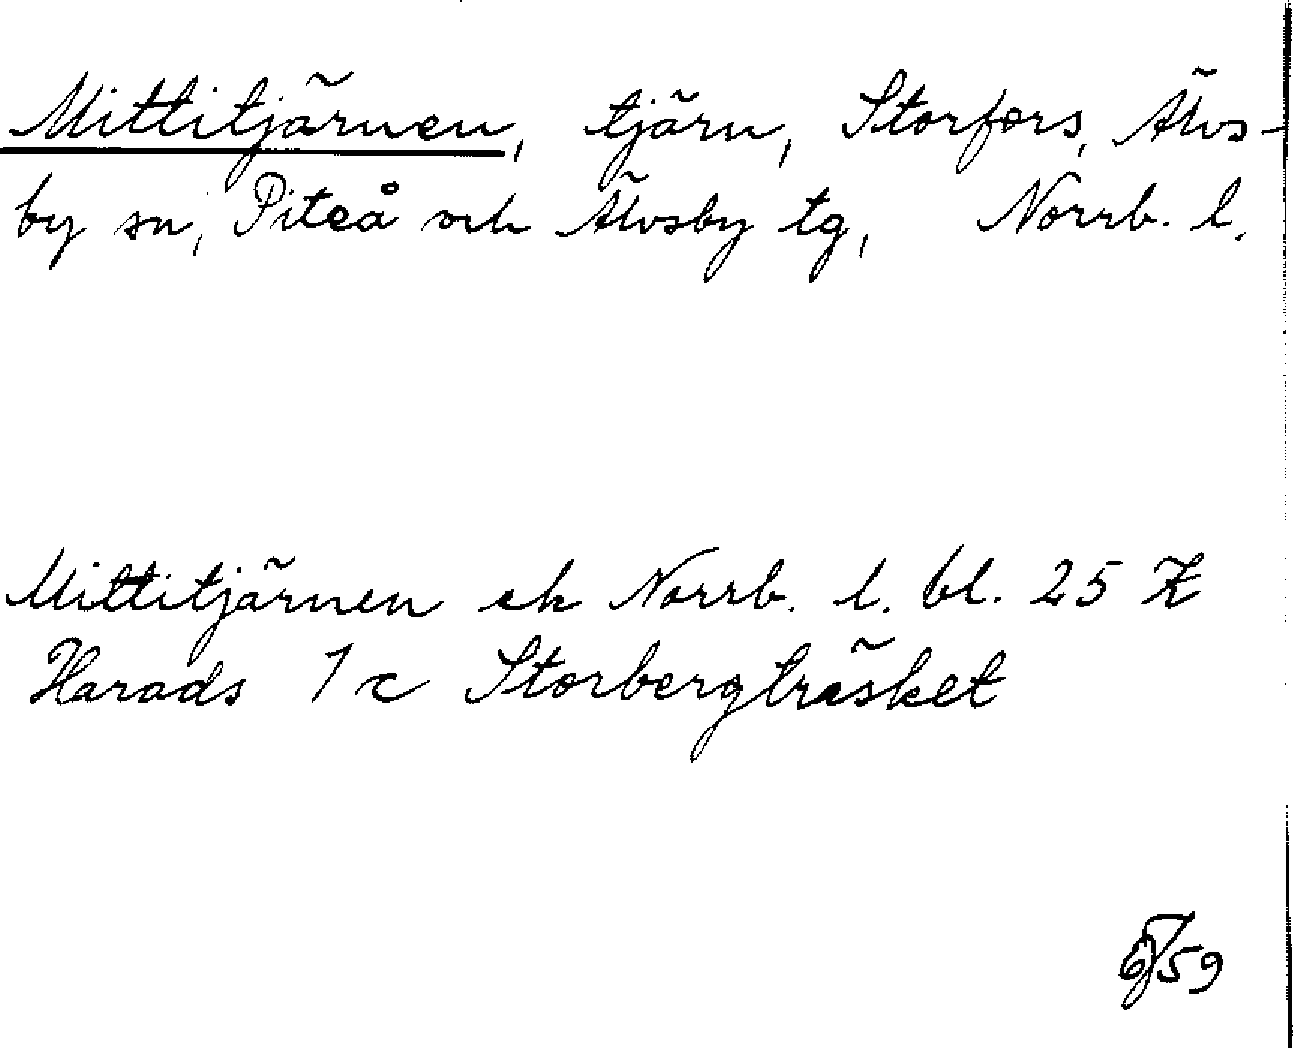 Mittitjärnen, tjärn, Storfors, Älvs-
by sn, Piteå och Älvsby tg, Norrb. l.
Mittitjärnen ek Norrb. l. bl. 25 K
Harads 1 c Storbergträsket
59